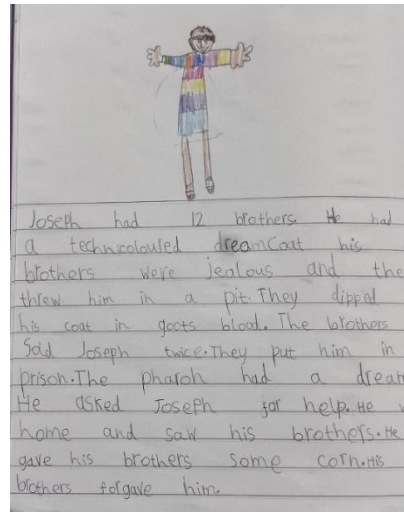 Joseph had 12 brothers He had
a technicolouled dreamcoat his
brothers were jealous and the
threw him in a pit. They dipped
his coat in goats blood. The brothers
Sold Joseph twice. They put him in
prison. The pharoh had a dream
He asked Joseph for help. He w
home and saw his brothers. He
gave his brothers some corn. His
brothers forgave him.